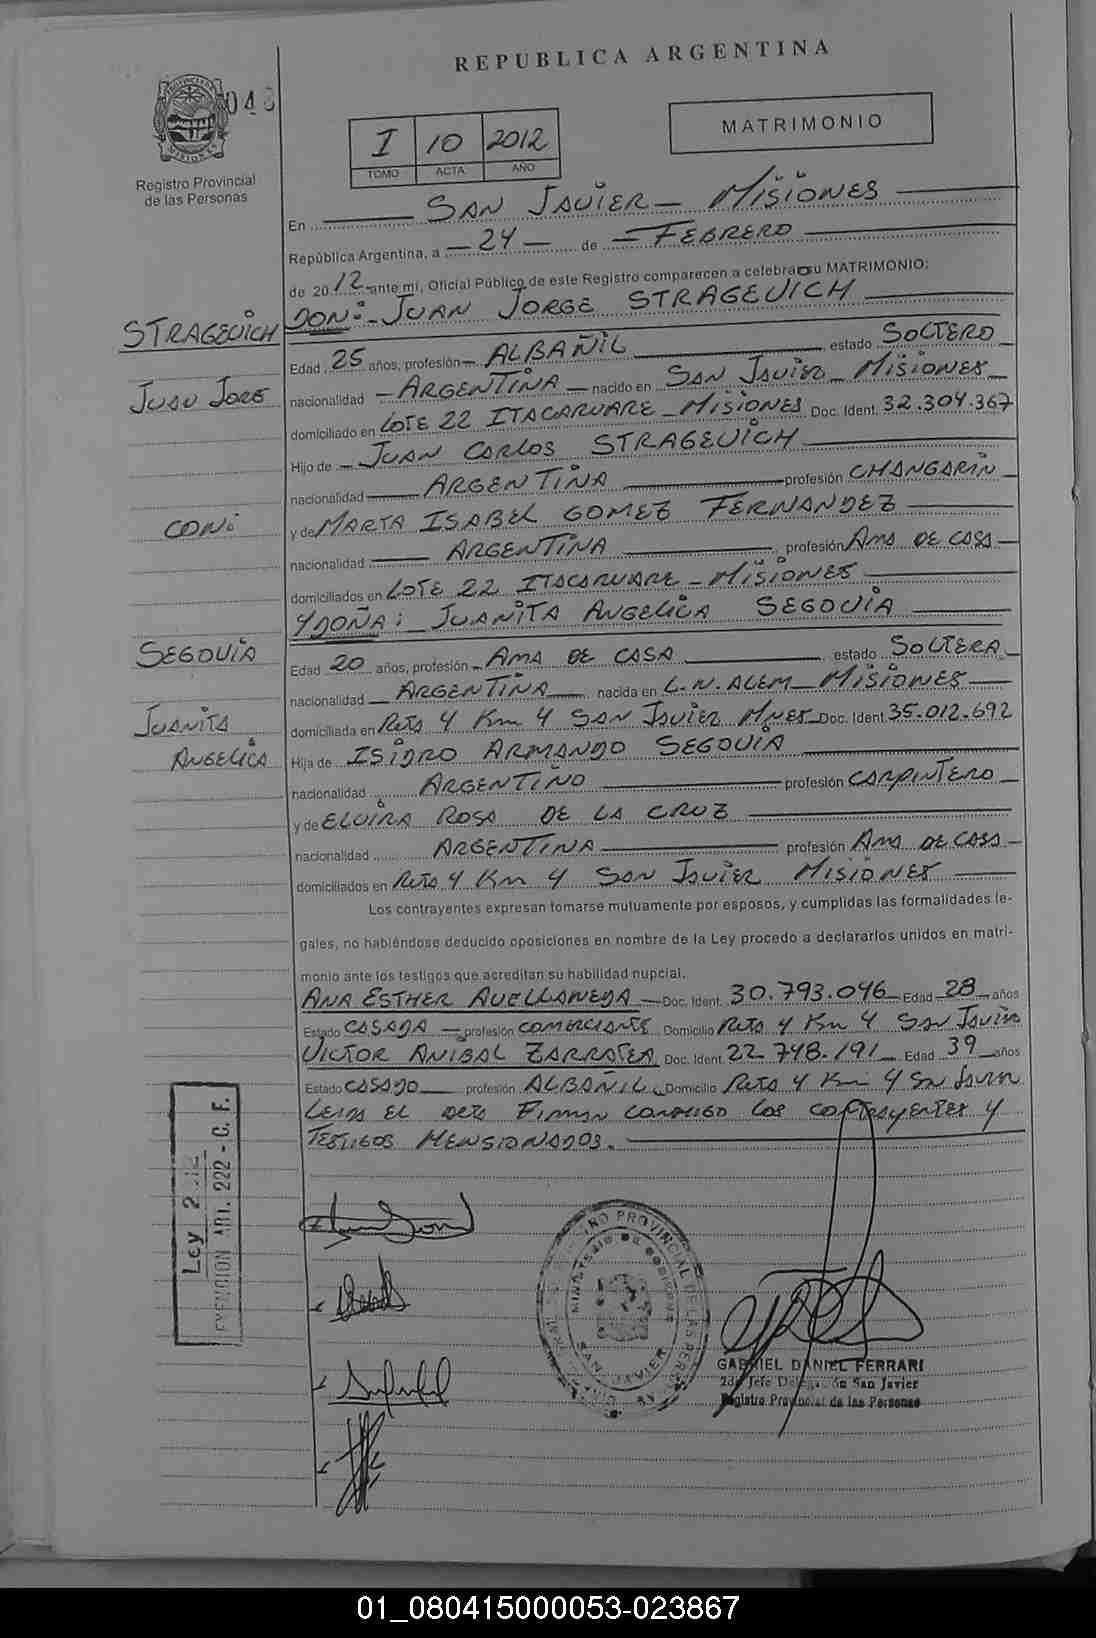 REPUBLICA ARGENTINA
048
MATRIMONIO
I 10 2012
TOMO ACTA AÑO
Registro Provincial
de las Personas
En SAN JAVIER - MISIONES
República Argentina, a - 24 - de - FEBRERO
de 2012 ante mí, Oficial Público de este Registro comparecen a celebrar su MATRIMONIO:
DON: - JUAN JORGE STRAGEVICH
STRAGEVICH
Edad 25 años, profesión - ALBAÑIL estado SOLTERO
JUAN JORGE
nacionalidad - ARGENTINA - nacido en SAN JAVIER - MISIONES
domiciliado en LOTE 22 ITACARUARE - MISIONES Doc. Ident. 32.304.367
Hijo de - JUAN CARLOS STRAGEVICH
nacionalidad ARGENTINA profesión CHANGARIN
CON:
y de MARTA ISABEL GOMEZ FERNANDEZ
nacionalidad ARGENTINA profesión AMA DE CASA
domiciliados en LOTE 22 ITACARUARE - MISIONES
Y DOÑA: JUANITA ANGELICA SEGOVIA
SEGOVIA
Edad 20 años, profesión - AMA DE CASA estado SOLTERA
nacionalidad ARGENTINA nacida en L.N. ALEM - MISIONES
JUANITA
domiciliada en RUTA 4 KM 4 SAN JAVIER MNES - Doc. Ident. 35.012.692
ANGELICA
Hija de ISIDRO ARMANDO SEGOVIA
nacionalidad ARGENTINO profesión CARPINTERO
y de ELVIRA ROSA DE LA CRUZ
nacionalidad ARGENTINA profesión AMA DE CASA
domiciliados en RUTA 4 KM 4 SAN JAVIER MISIONES
Los contrayentes expresan tomarse mutuamente por esposos, y cumplidas las formalidades le-
gales, no habiéndose deducido oposiciones en nombre de la Ley procedo a declararlos unidos en matri-
monio ante los testigos que acreditan su habilidad nupcial.
ANA ESTHER AVELLANEDA - Doc. Ident. 30.793.046 Edad 28 años
Estado CASADA - profesión COMERCIANTE Domicilio RUTA 4 KM 4 SAN JAVIER
VICTOR ANIBAL ZARRATEA Doc. Ident. 22.748.191 Edad 39 años
Estado CASADO profesión ALBAÑIL Domicilio RUTA 4 KM 4 SN JAVIER
LEIDA EL ACTA FIRMAN CONMIGO LOS CONTRAYENTES Y
TESTIGOS MENSIONADOS.
Ley
EXENCION ART. 222 - C. F.
REGISTRO PROVINCIAL DE LAS PERSONAS
MINISTERIO DE GOBIERNO
SAN JAVIER
GABRIEL DANIEL FERRARI
2do Jefe Delegación San Javier
Registro Provincial de las Personas
01_080415000053-023867